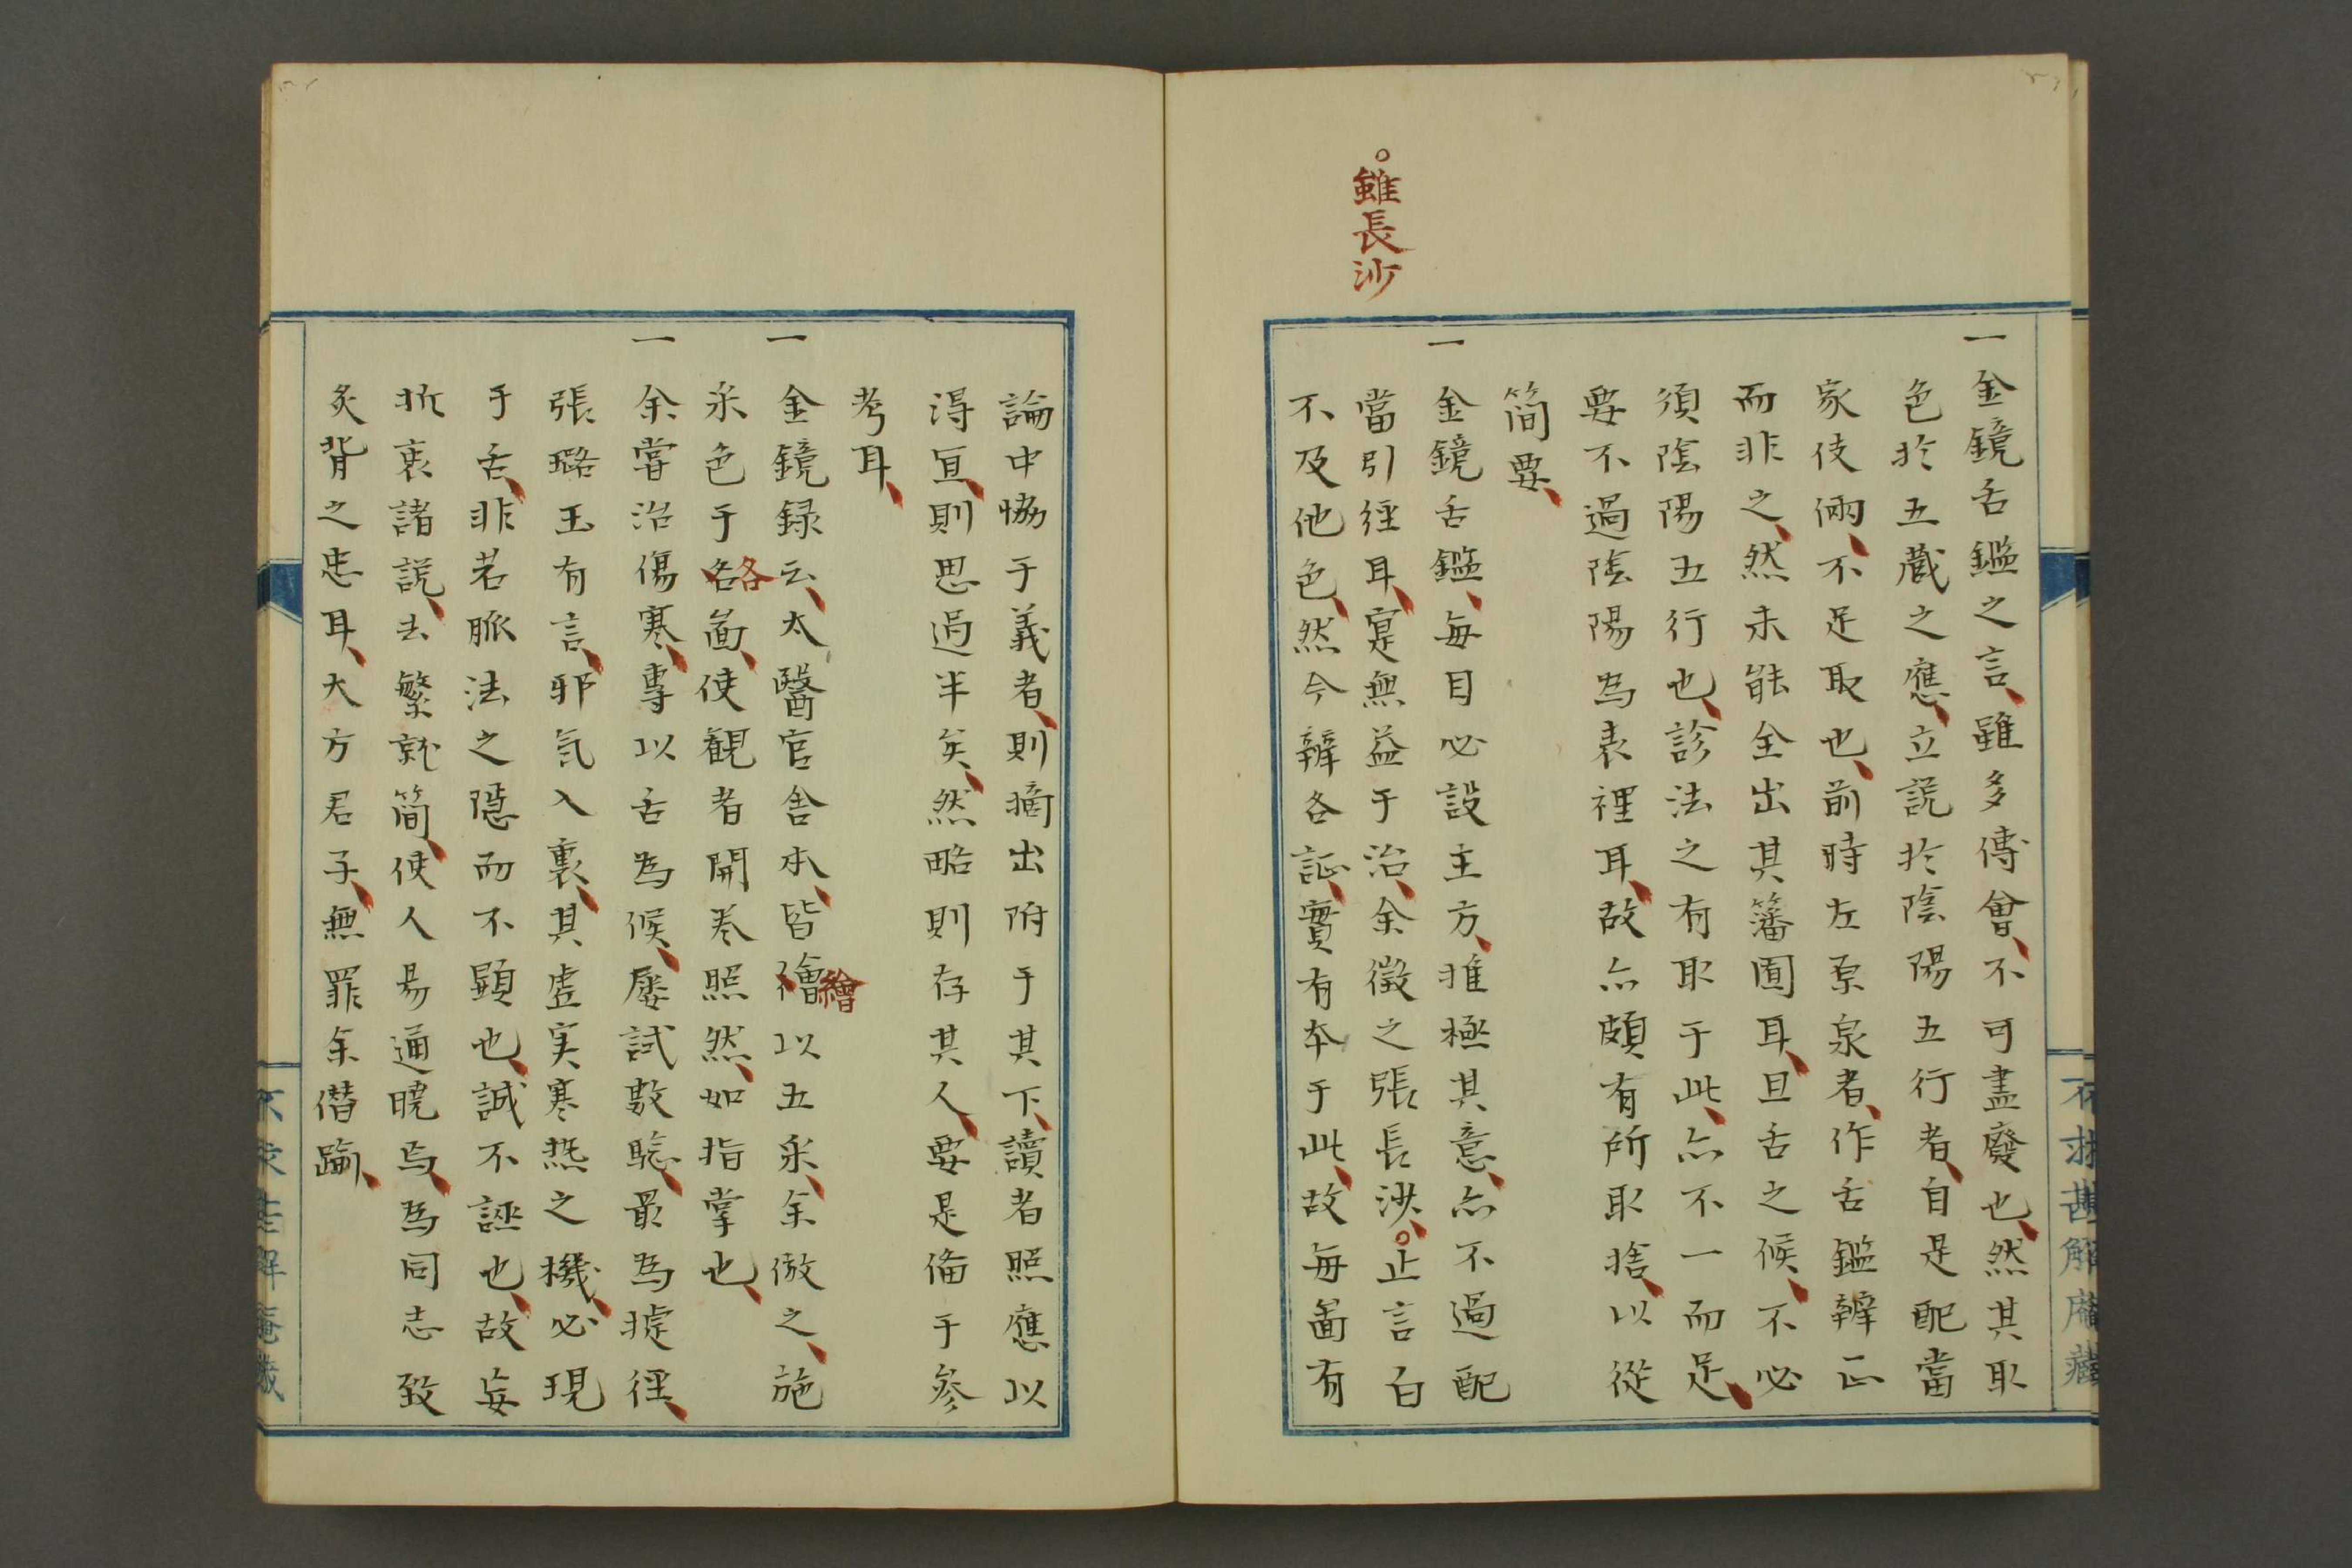 一金鏡舌鑑之言、雖多傅會、不可盡廢也、然其取
色於五蔵之應、立説於陰陽五行者、自是配當
家伎倆、不足取也、前時左原泉者、作舌鑑辨正
而非之、然未能全出其籓囿耳、且舌之候、不必
須陰陽五行也、診法之有取于此、亦不一而足、
要不過陰陽為表裡耳、故亦頗有所取捨、以從
簡要、
一金鏡舌鑑、毎目必設主方、推極其意、亦不過配
當引徑耳、寔無益于治、余徴之張長沙、。止言白
。雖長沙
不及他色、然今辨各証、實有本于此、故毎啚有
論中恊于義者、則摘出附于其下、讀者照應以
得宜、則思過半矣、然略則存其人、要是俻于參
考耳、
一金鏡録云、太醫官舎本、皆襘以五采、余倣之、施
繪
采色于名啚、使観者開巻照然、如指掌也、
各
一余嘗治傷寒、專以舌為候、屡試數驗、最為捷徑、
張璐玉有言、邪気入裏、其虚実寒熱之機、必現
于舌、非若脈法之隠而不顕也、誠不誣也、故妄
折衷諸説、去繁就簡、使人易通曉焉、為同志致
炙背之忠耳、大方君子、無罪余僭踰、
甚解庵藏